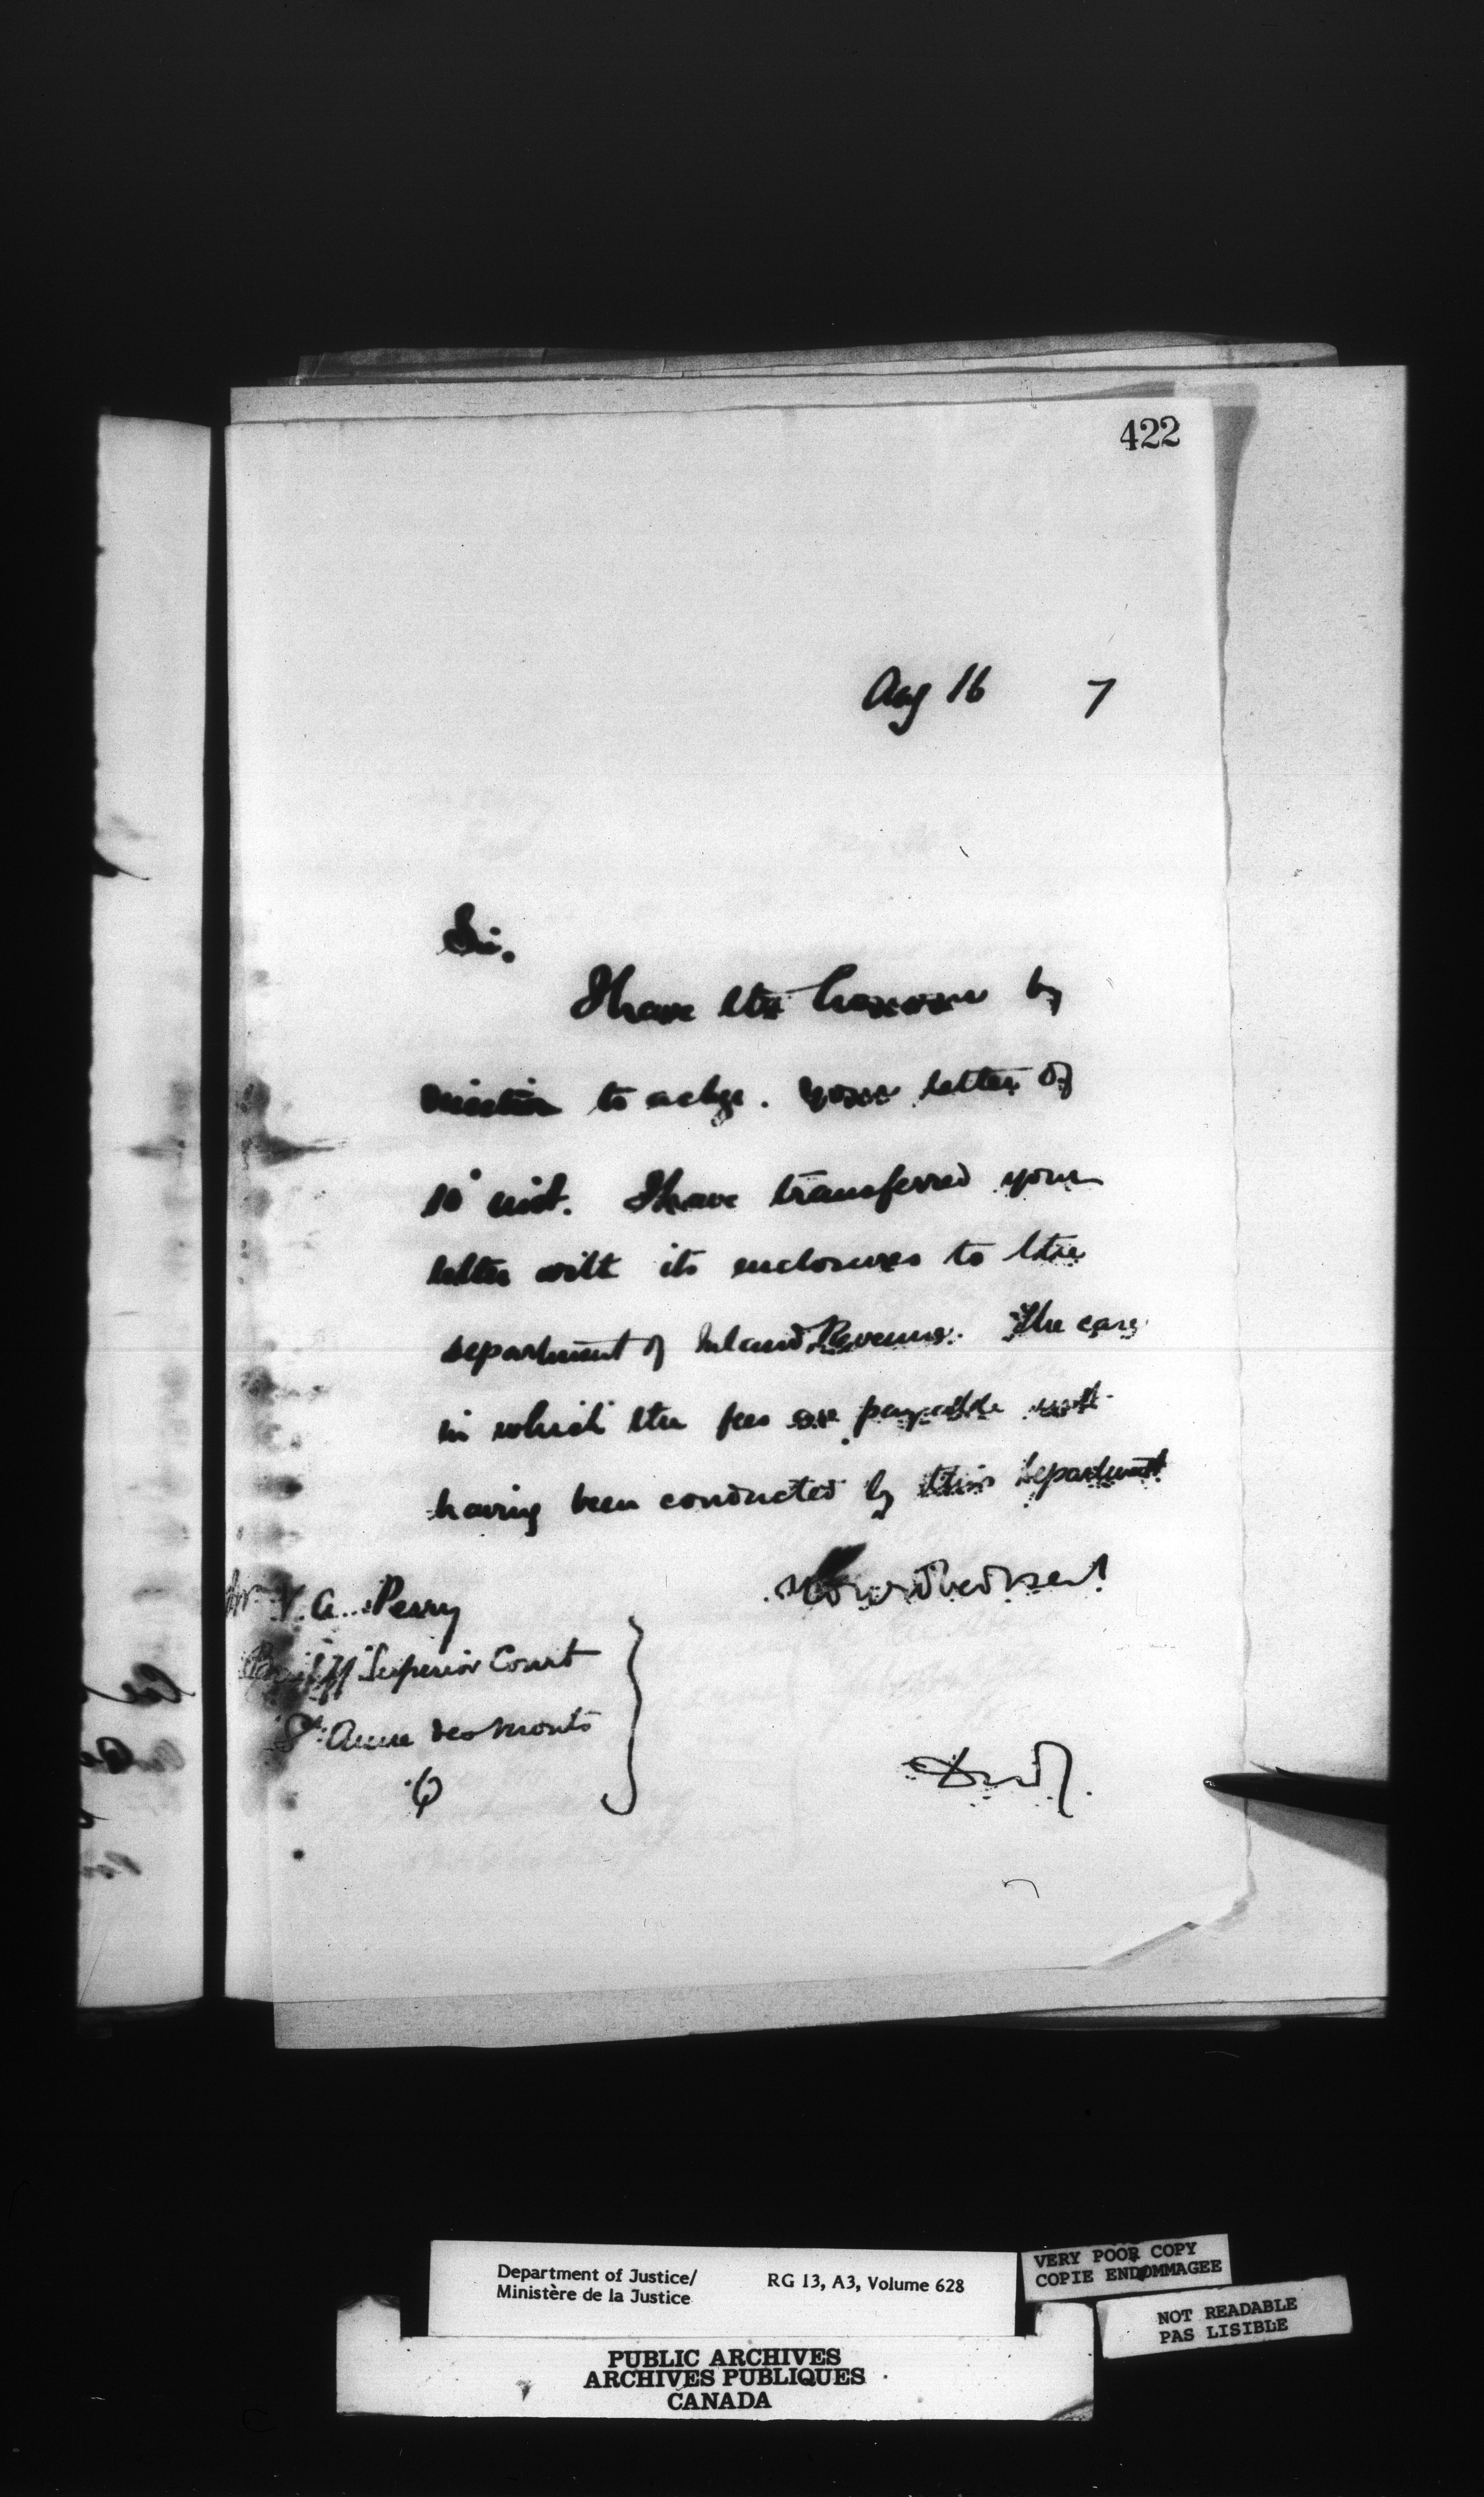 422
Aug 16 7
Sir.
I have the honour by
direction to ackge. your letter of
10 inst. I have transferred your
letter with its enclosures to the
department of Inland Revenue. The case
in which the fees are payable not
having been conducted by this department
V. A. Perry
Bailiff Superior Court
St Anne des Monts
Q
Department of Justice/
Ministère de la Justice
RG 13, A3, Volume 628
VERY POOR COPY
COPIE ENDOMMAGEE
NOT READABLE
PAS LISIBLE
PUBLIC ARCHIVES
ARCHIVES PUBLIQUES
CANADA